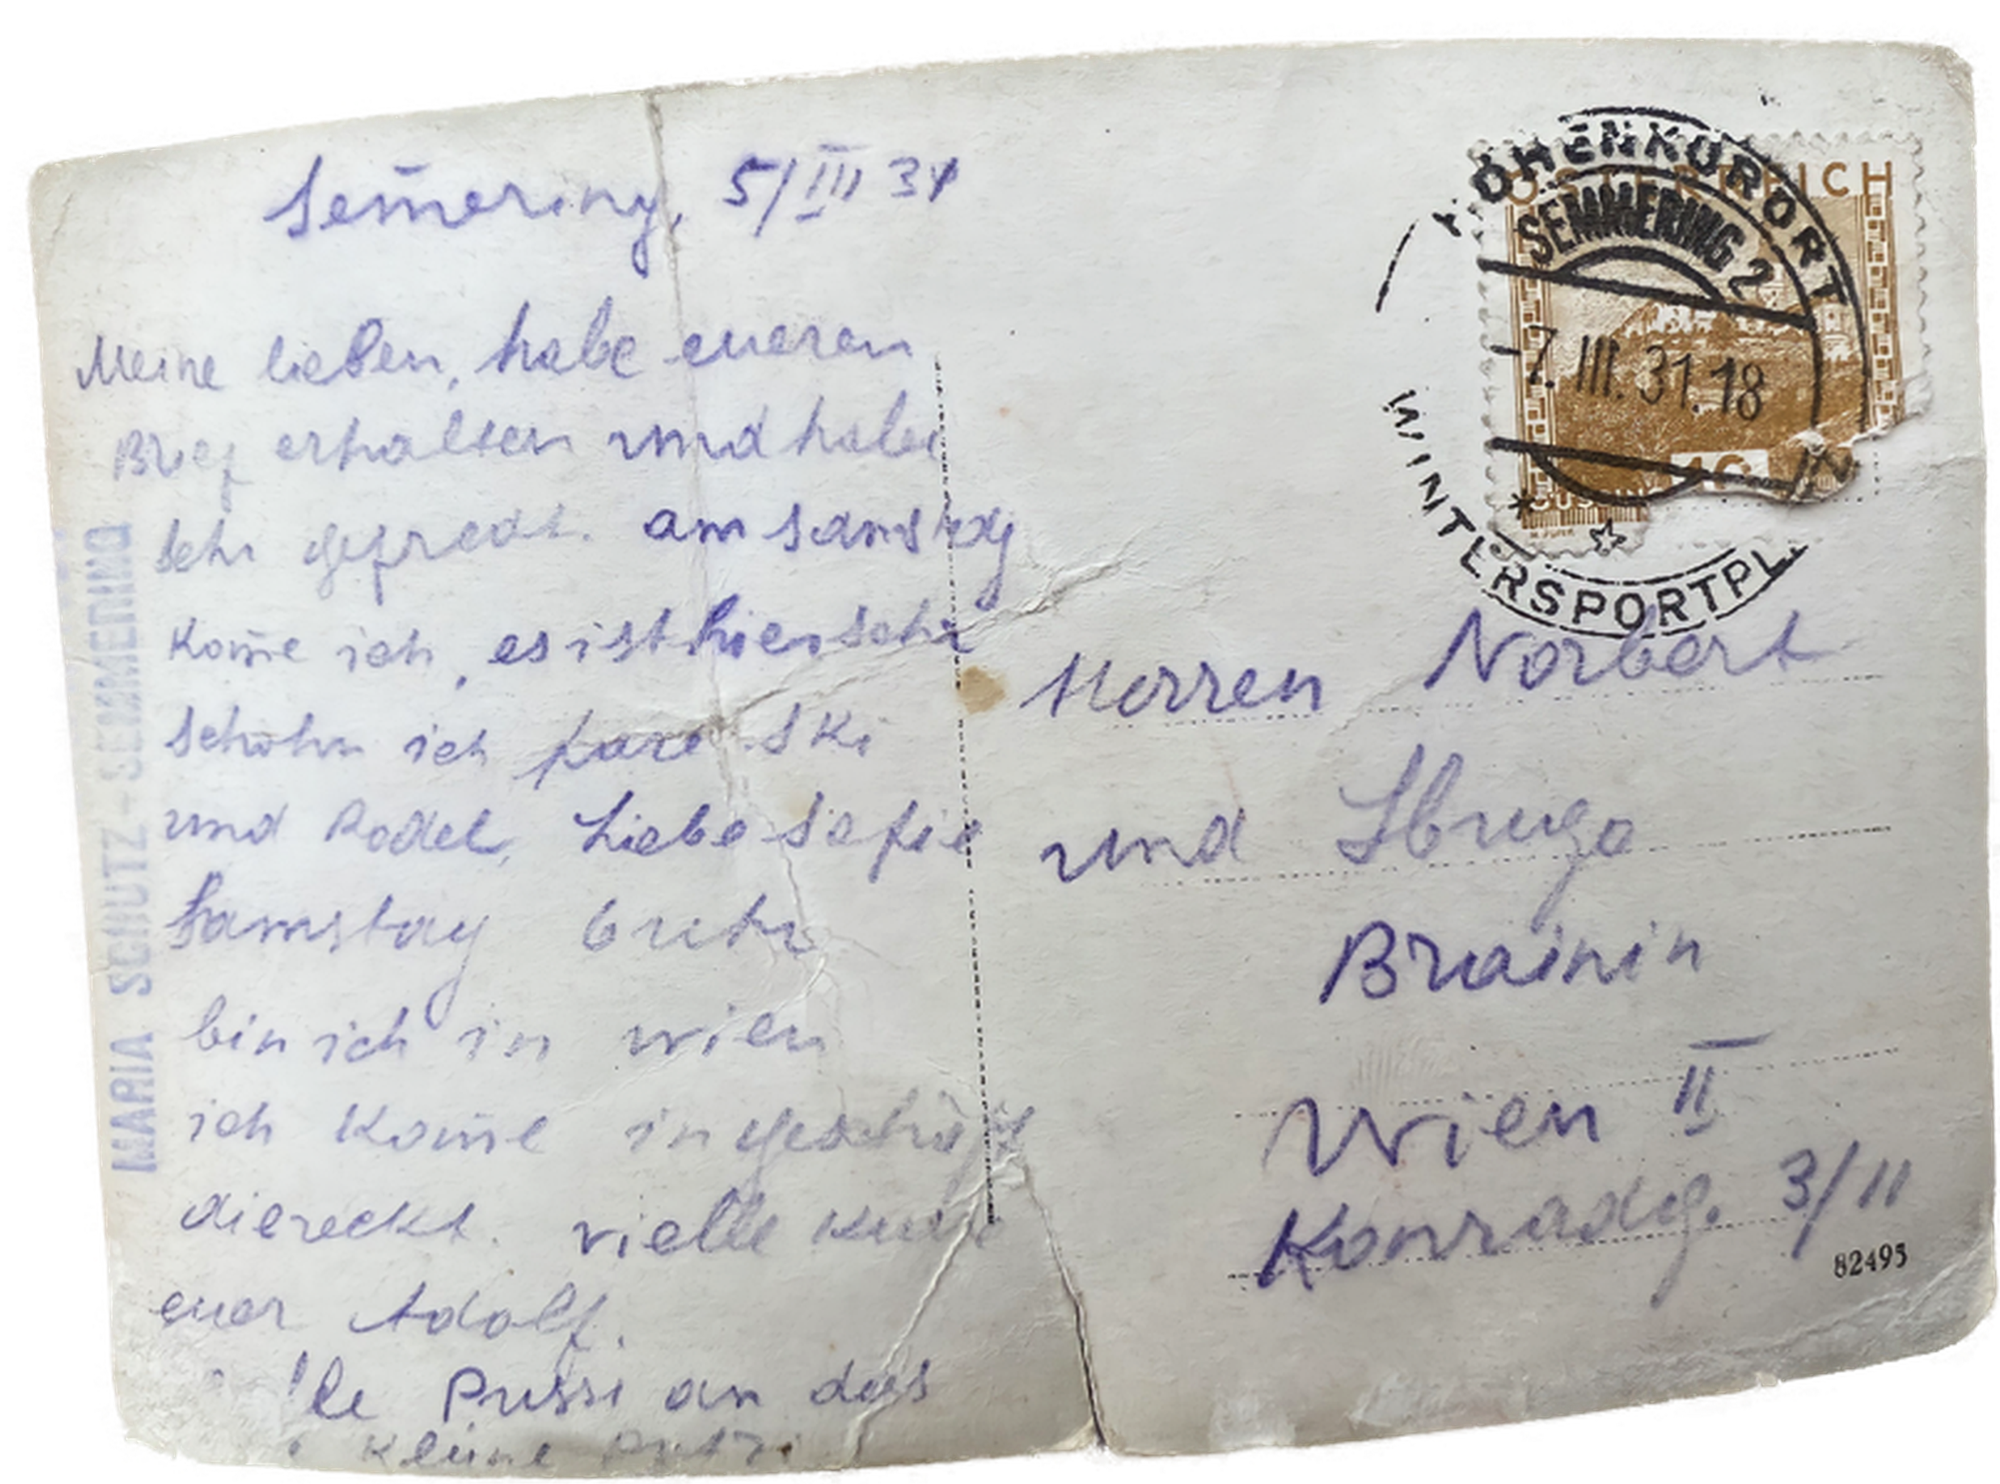 Sem̄ering, 5/III 31
Meine lieben, habe eueren
Brief erhalten und habe
sehr gefreat. am samstag
Kom̄e ich, es ist hier sehr
schohn ich fare Ski
und Rodel, Liebe Sofie
Samstag 6 uhr
bin ich in wien
ich Kom̄e in geschäft
diereckt. vielle
euer Adolf.
Pussi an das
Kleine
MARIA SCHUTZ - SEMMERING
HÖHENKURORT
SEMMERING 2
-7.III.31.18
WINTERSPORTPL.
ÖSTERREICH
Herren Norbert
und
Brainin
Wien II
Konradg. 3/11
82495